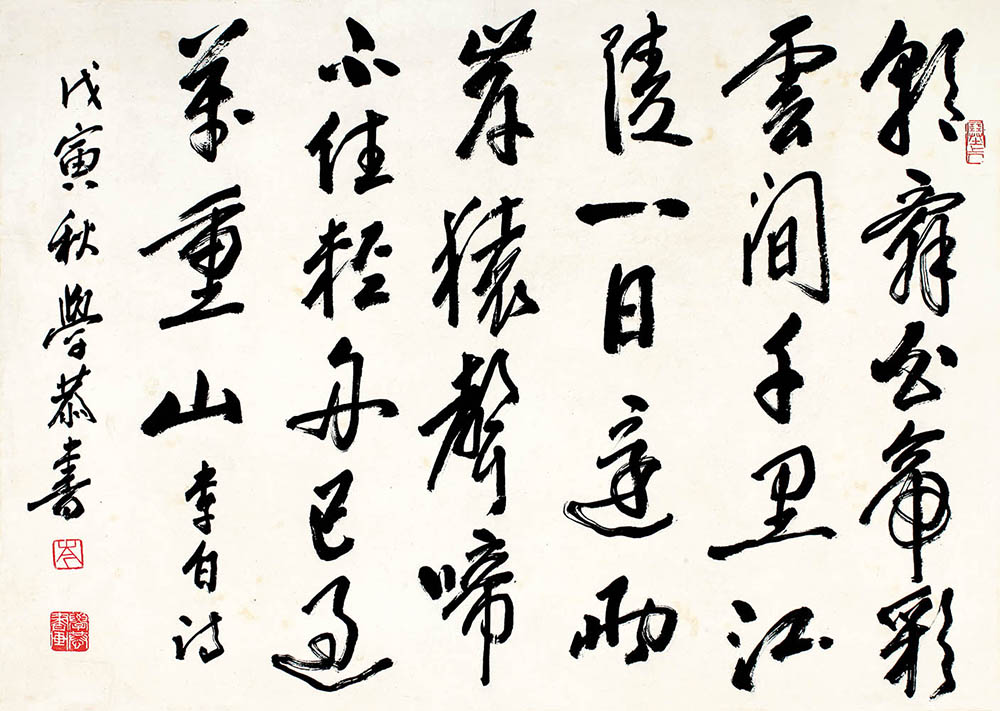 朝辭白帝彩
雲間千里江
陵一日還兩
岸猿聲啼
不住輕舟已過
萬重山 李白詩
戊寅秋學恭書
岑
學恭書畫